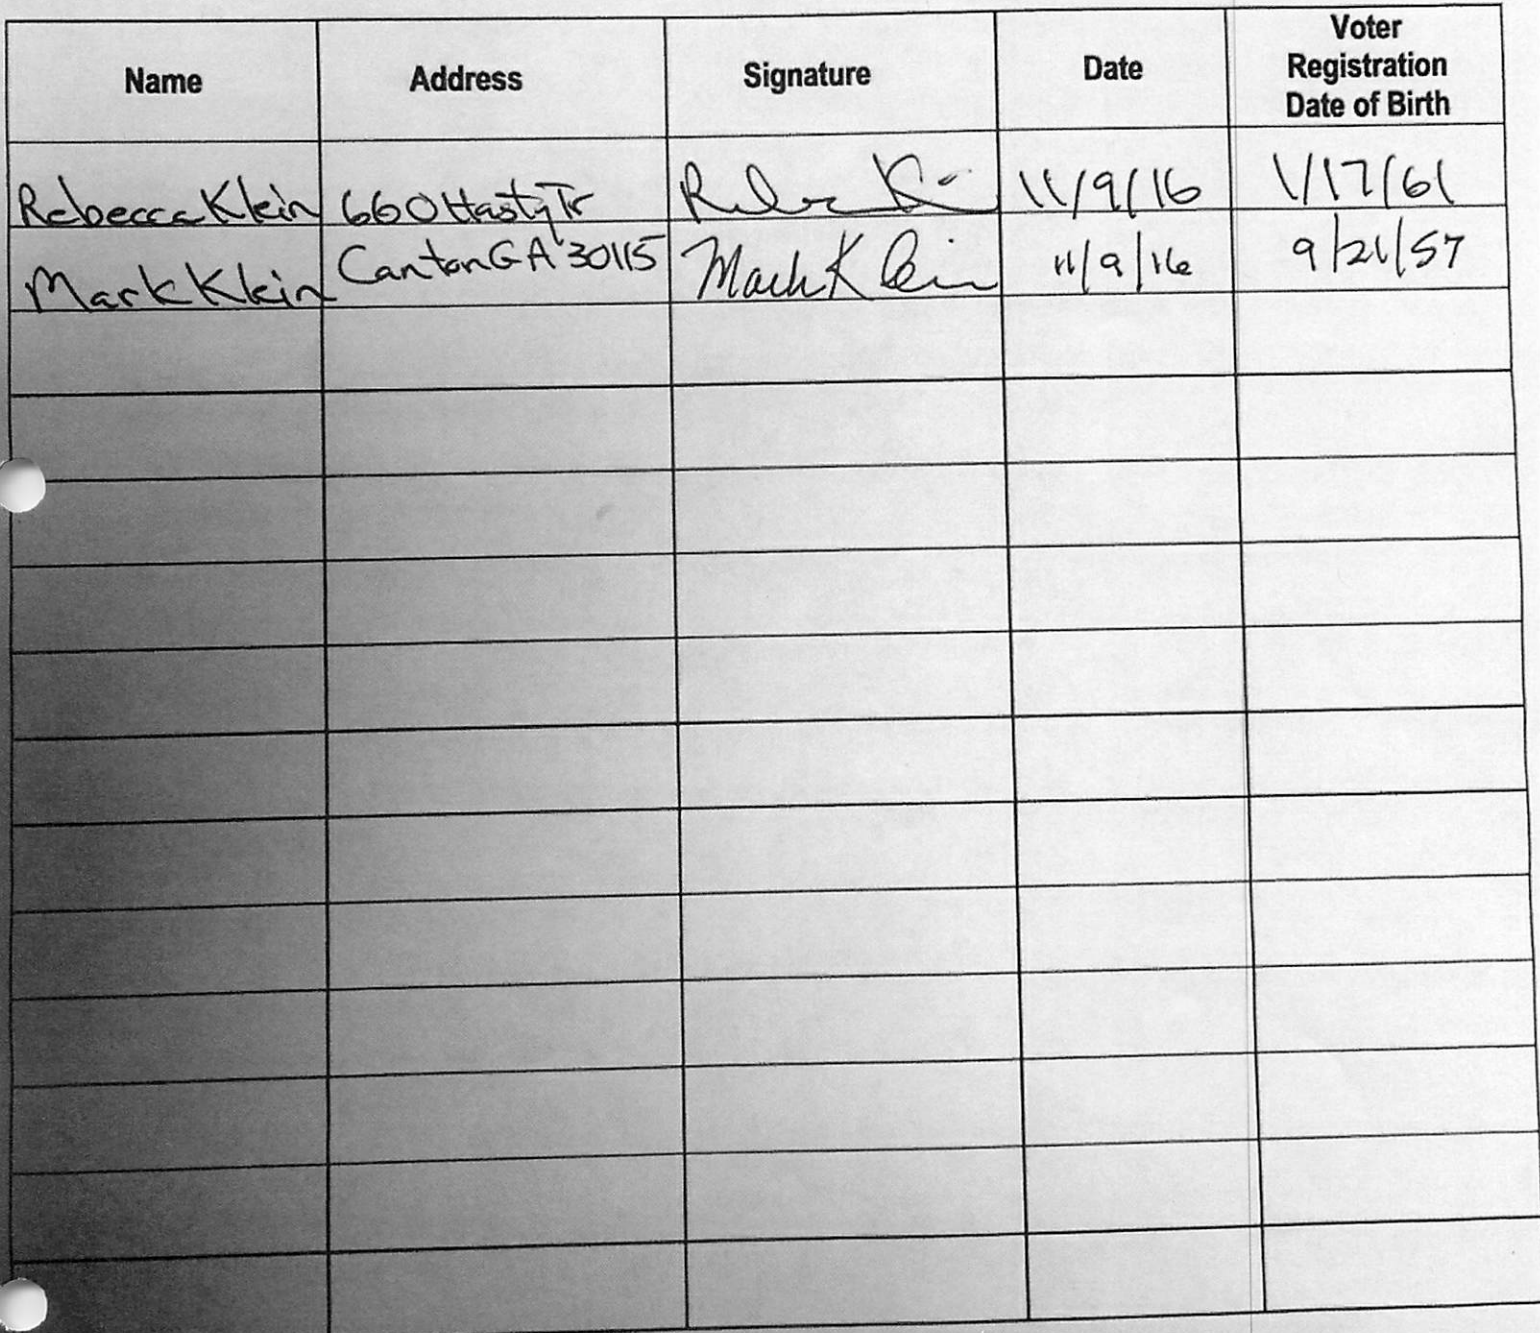 Name Address Signature Date Voter Registration Date of Birth
Rebecca Klein 660 Hasty Tr Rebecca Klein 11/9/16 1/17/61
Mark Klein Canton GA 30115 Mark Klein 11/9/16 9/21/57